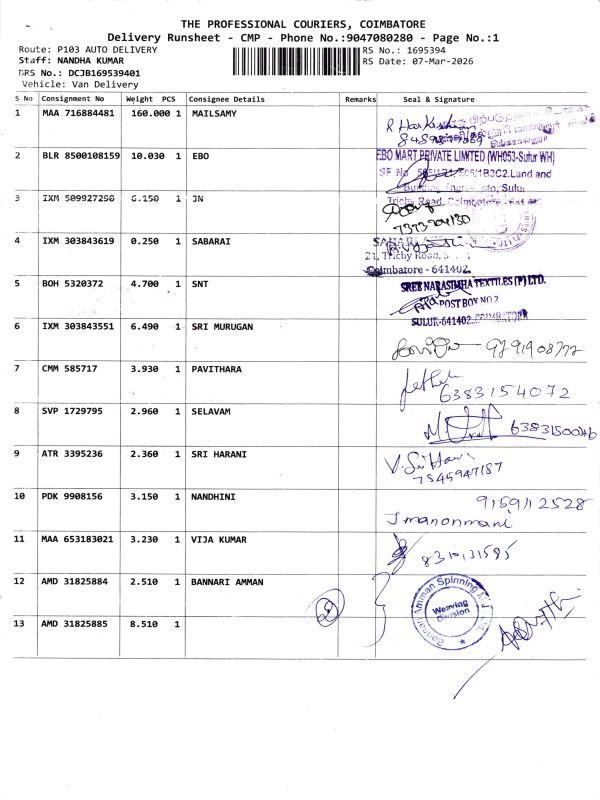 THE PROFESSIONAL COURIERS, COIMBATORE
Delivery Runsheet - CMP - Phone No.:9047080280 - Page No.:1
Route: P103 AUTO DELIVERY RS No.: 1695394
Staff: NANDHA KUMAR RS Date: 07-Mar-2026
DRS No.: DCJB169539401
Vehicle: Van Delivery
S No Consignment No Weight PCS Consignee Details Remarks Seal & Signature
1 MAA 716884481 160.000 1 MAILSAMY
2 BLR 8500108159 10.030 1 EBO
EBO MART PRIVATE LIMITED (WH053-Sulur WH)
SF No 1B3C2.Land and
Sulur
3 IXM 509927298 6.150 1 JN
Trichy Road, Coimbatore
7373704130
4 IXM 303843619 0.250 1 SABARAI
21, Trichy Road,
Coimbatore - 641402
5 BOH 5320372 4.700 1 SNT
SREE NARASIMHA TEXTILES (P) LTD.
POST BOX NO.2
SULUR-641402 COIMBATORE
6 IXM 303843551 6.490 1 SRI MURUGAN
9791908772
7 CMM 585717 3.930 1 PAVITHARA
6383154072
8 SVP 1729795 2.960 1 SELAVAM
9 ATR 3395236 2.360 1 SRI HARANI
7545947187
10 PDK 9908156 3.150 1 NANDHINI
9159112528
J manonmani
11 MAA 653183021 3.230 1 VIJA KUMAR
8310131585
12 AMD 31825884 2.510 1 BANNARI AMMAN
Bannari Amman Spinning Mills Ltd.
Weaving
Division
13 AMD 31825885 8.510 1